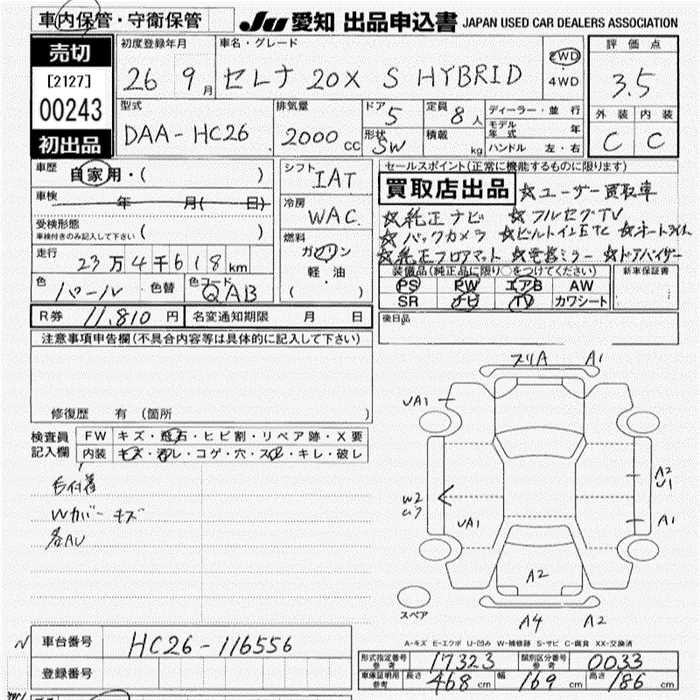 車内保管・守衛保管
JU 愛知 出品申込書 JAPAN USED CAR DEALERS ASSOCIATION
売切
[2127]
00243
初出品
初度登録年月
26 9月
車名・グレード
セレナ 20X S HYBRID
2WD
・
4WD
評価点
3.5
外装 内装
C C
型式
DAA-HC26
排気量
2000cc
ドア 5
形状 SW
定員 8人
積載 kg
ディーラー・並行
モデル年式 年
ハンドル 左・右
車歴
自家用・( )
車検 年 月( 日)
受検形態
車検付きのみ記入して下さい ( )
走行
23万4千618km
色 パール 色替 色コード QAB
シフト
IAT
冷房
WAC
燃料
ガソリン
軽・油
( )
セールスポイント(正常に機能するものに限ります)
買取店出品 ☆ユーザー買取車
☆純正ナビ ☆フルセグTV
☆バックカメラ ☆ビルトインETC ☆オートライト
☆純正フロアマット ☆電格ミラー ☆ドアバイザー
装備品(純正品に限り○をつけてください) 新車保証書
PS PW エアB AW
SR ナビ TV カワシート
後日品
R券 11,810円 名変通知期限 月 日
注意事項申告欄(不具合内容等は具体的に記入して下さい)
修復歴 有(箇所 )
検査員記入欄
FW キズ・飛石・ヒビ割・リペア跡・X要
内装 キズ・汚レ・コゲ・穴・スレ・キレ・破レ
Wカバーキズ
各AU
スリA A1
UA1
A2
U1
W2
UA1
A1
A2
スペア
A4 A2
A-キズ E-エクボ U-凹み W-補修跡 S-サビ C-腐食 XX-交換済
車台番号 HC26-116556
登録番号
形式指定番号参考 17323 類別区分番号参考 0033
車庫証明用参考 長さ 468cm 幅 169cm 高さ 186cm